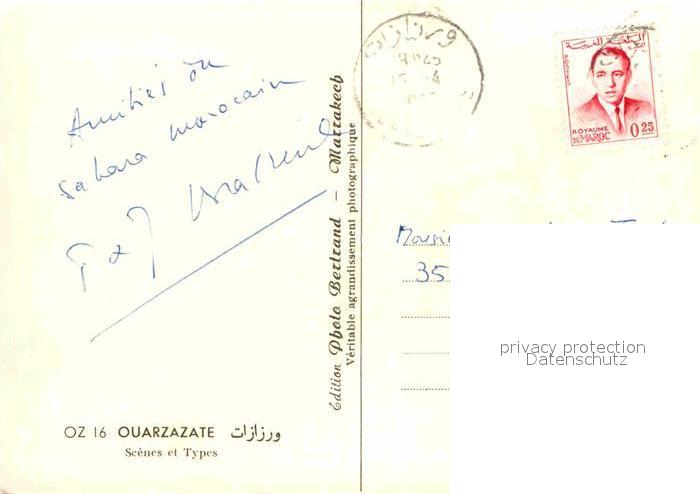 Amitiés du
sahara marocain
OZ 16 OUARZAZATE ورزازات
Scènes et Types
Edition Photo Bertrand – Marrakech
Véritable agrandissement photographique
ورزازات
المملكة المغربية
POSTES
ROYAUME
DU MAROC 0.25
35
privacy protection
Datenschutz